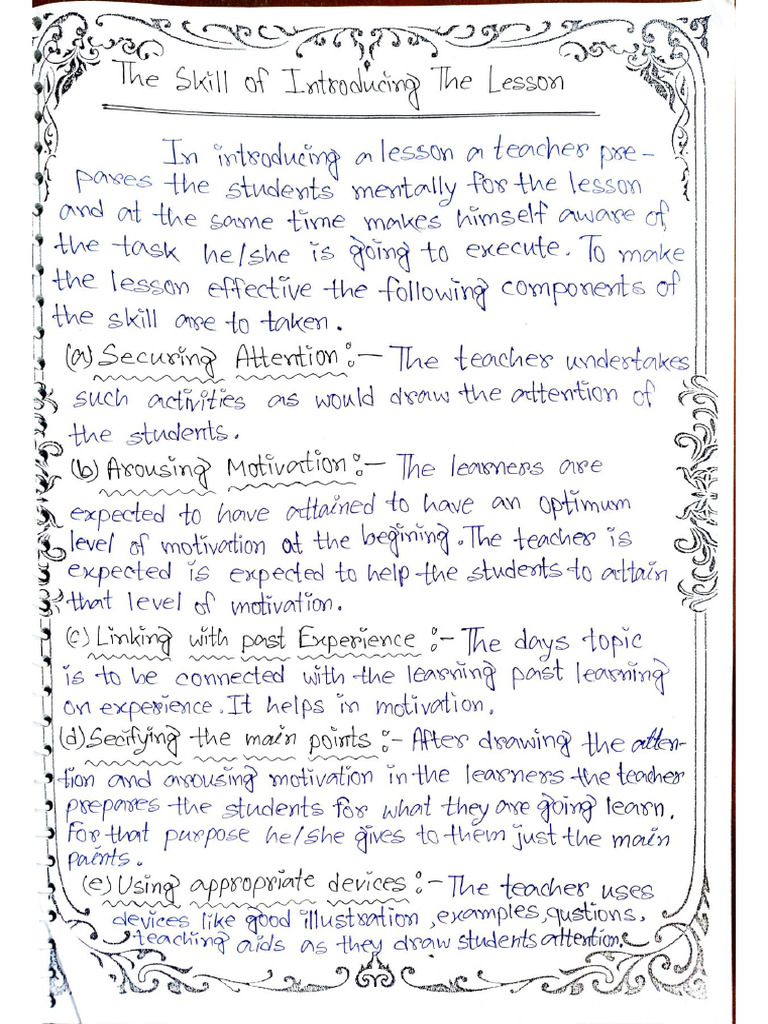 The Skill of Introducing The Lesson
In introducing a lesson a teacher pre-
pares the students mentally for the lesson
and at the same time makes himself aware of
the task he/she is going to execute. To make
the lesson effective the following components of
the skill are to taken.
(a) Securing Attention :- The teacher undertakes
such activities as would draw the attention of
the students.
(b) Arousing Motivation :- The learners are
expected to have attained to have an optimum
level of motivation at the begining. The teacher is
expected is expected to help the students to attain
that level of motivation.
(c) Linking with past Experience :- The days topic
is to be connected with the learning past learning
on experience. It helps in motivation.
(d) Secifying the main points :- After drawing the atten-
tion and arousing motivation in the learners the teacher
prepares the students for what they are going learn.
For that purpose he/she gives to them just the main
paints.
(e) Using appropriate devices :- The teacher uses
devices like good illustration, examples, qustions,
teaching aids as they draw students attention.